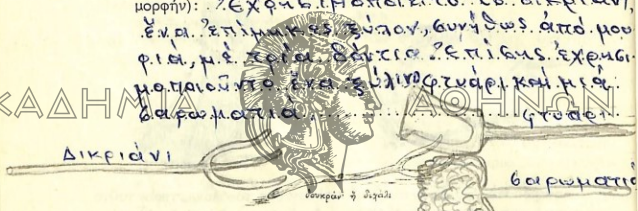 μορφήν): Ἐχρησιμοποιεῖτο τὸ δικριάνι,
ἕνα ἐπίμηκες ξύλον, συνήθως ἀπό μου
ριά, μὲ τρία δόντια. Ἐπίσης ἐχρησι
μοποιοῦντο ἕνα ξύλινο φτυάρι καὶ μιὰ
σαρωματιά.
ΑΚΑΔΗΜΙΑ ΑΘΗΝΩΝ
φτυάρι
Δικριάνι
σαρωματιά
δουκράν' ἢ διχάλι